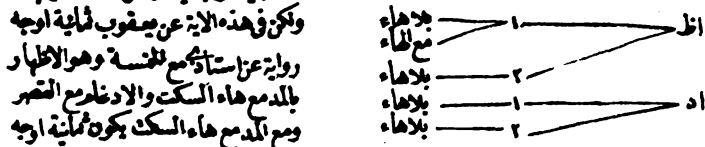 ولكن فى هذه الآية عن يعقوب ثمانية اوجه
رواية عن استاذى مع الخمسة وهو الاظهار
بالمد مع هاء السكت والادغام مع القصر
ومع المد مع هاء السكت يكون ثمانية اوجه
اظ ١ بلا هاء
مع الهاء
٢ بلا هاء
اد ١ بلا هاء
٢ بلا هاء